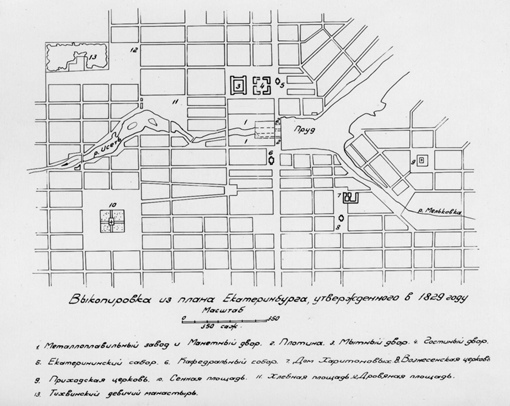 13
12
11
3
4
5
1
2
Пруд
р. Исеть
1
2
6
9
7
р. Мельковка
10
8
Выкопировка из плана Екатеринбурга, утвержденного в 1829 году
Масштаб
150 0 150
150 саж.
1. Металлоплавильный завод и Манетный двор. 2. Плотина. 3. Мытный двор. 4. Гостиный двор.
5. Екатерининский собор. 6. Кафедральный собор. 7. Дом Харитоновых 8. Вознесенская церковь
9. Приходская церковь. 10. Сенная площадь. 11. Хлебная площадь 12. Дровяная площадь.
13 Тихвинский девичий манастырь.